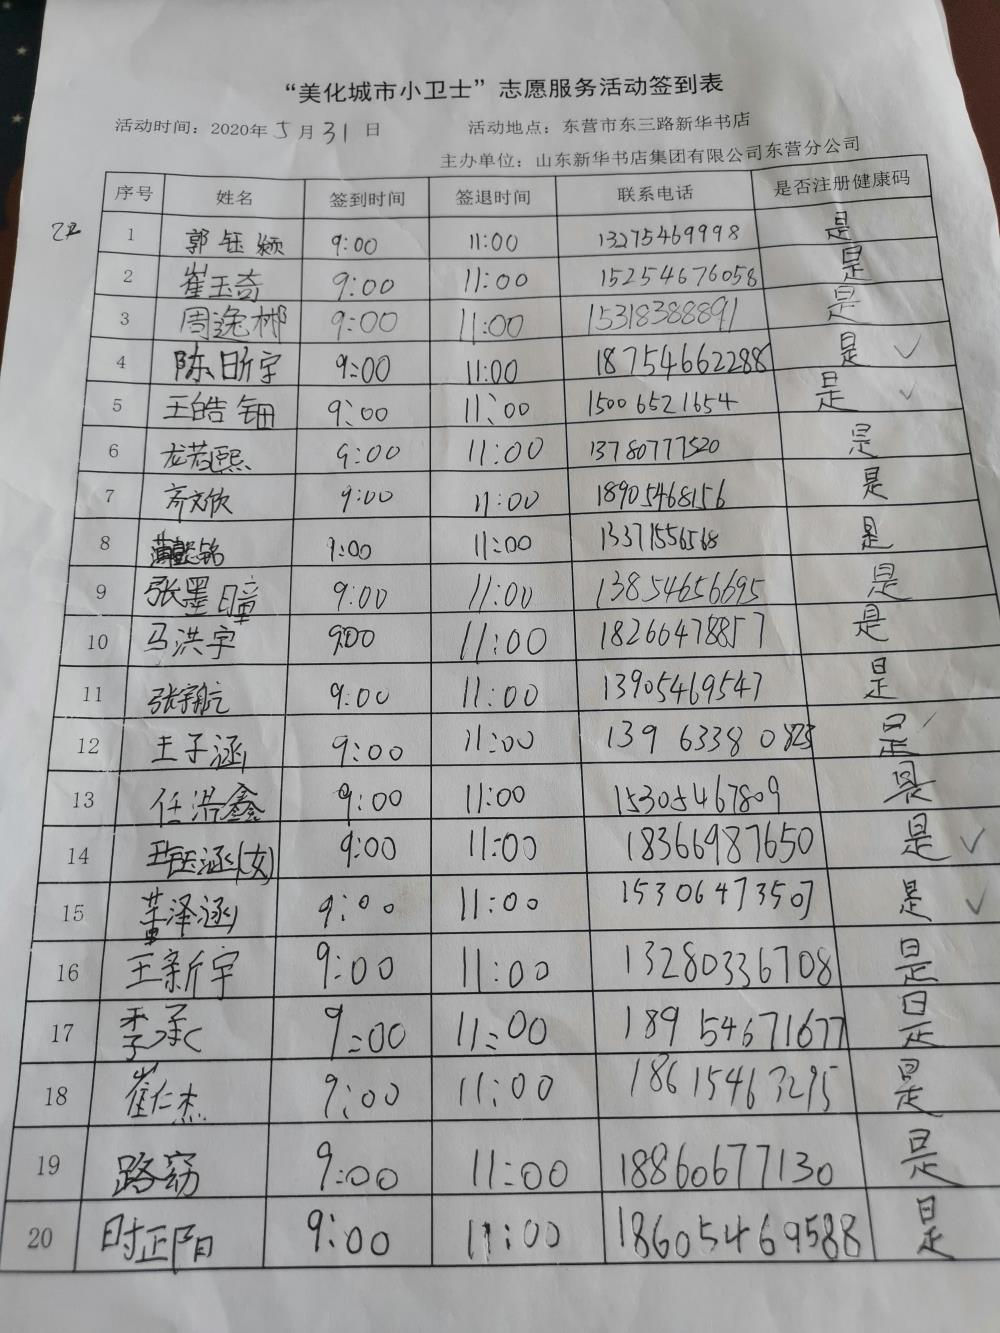 “美化城市小卫士”志愿服务活动签到表
活动时间：2020年 5 月 31 日 活动地点：东营市东三路新华书店
主办单位：山东新华书店集团有限公司东营分公司
序号 姓名 签到时间 签退时间 联系电话 是否注册健康码
1 郭钰颍 9:00 11:00 13275469998 是
2 崔玉奇 9:00 11:00 15254676058 是
3 周逸郴 9:00 11:00 15318388891 是
4 陈昕宇 9:00 11:00 18754662288 是 ✓
5 王皓钿 9:00 11:00 15006521654 是 ✓
6 龙若熙 9:00 11:00 13780777520 是
7 齐文欣 9:00 11:00 18905468156 是
8 9:00 11:00 13371556568 是
9 张墨瞳 9:00 11:00 13854656695 是
10 马洪宇 9:00 11:00 18266478857 是
11 张宇航 9:00 11:00 13905469547 是
12 王子涵 9:00 11:00 139 6338 0825 是
13 任浩鑫 9:00 11:00 15305467809 是
14 王钰涵(女) 9:00 11:00 18366987650 是 ✓
15 董泽涵 9:00 11:00 15306473507 是 ✓
16 王新宇 9:00 11:00 13280336708 是
17 李承 9:00 11:00 18954671677 是
18 崔仁杰 9:00 11:00 18615463295 是
19 路窈 9:00 11:00 18860677130 是
20 时正阳 9:00 11:00 18605469588 是